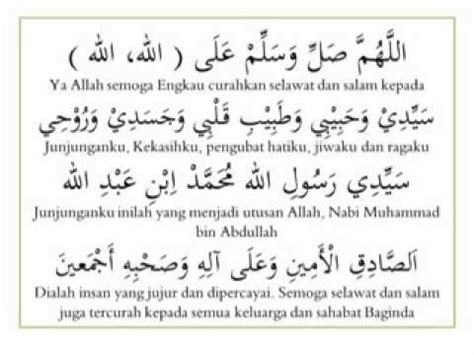 اللَّهُمَّ صَلِّ وَسَلِّمْ عَلَى ( الله، الله )
Ya Allah semoga Engkau curahkan selawat dan salam kepada
سَيِّدِيْ وَحَبِيْبِيْ وَطَبِيْبِ قَلْبِيْ وَجَسَدِيْ وَرُوْحِيْ
Junjunganku, Kekasihku, pengubat hatiku, jiwaku dan ragaku
سَيِّدِي رَسُولِ الله مُحَمَّدْ اِبْنِ عَبْدِ الله
Junjunganku inilah yang menjadi utusan Allah, Nabi Muhammad
bin Abdullah
اَلصَّادِقِ الْأَمِينِ وَعَلَى آلِهِ وَصَحْبِهِ أَجْمَعِينَ
Dialah insan yang jujur dan dipercayai. Semoga selawat dan salam
juga tercurah kepada semua keluarga dan sahabat Baginda